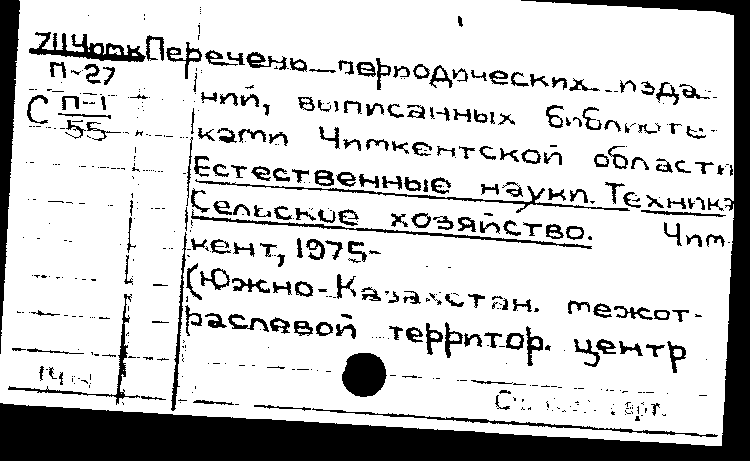 711Чимк Перечень периодических изда-
П-27
ний, выписанных библиоте-
С П-1
55
ками Чимкентской области
Естественные науки. Техника
Сельское хозяйство. Чим
кент, 1975-
(Южно-Казахстан. межот-
раслевой территор. центр